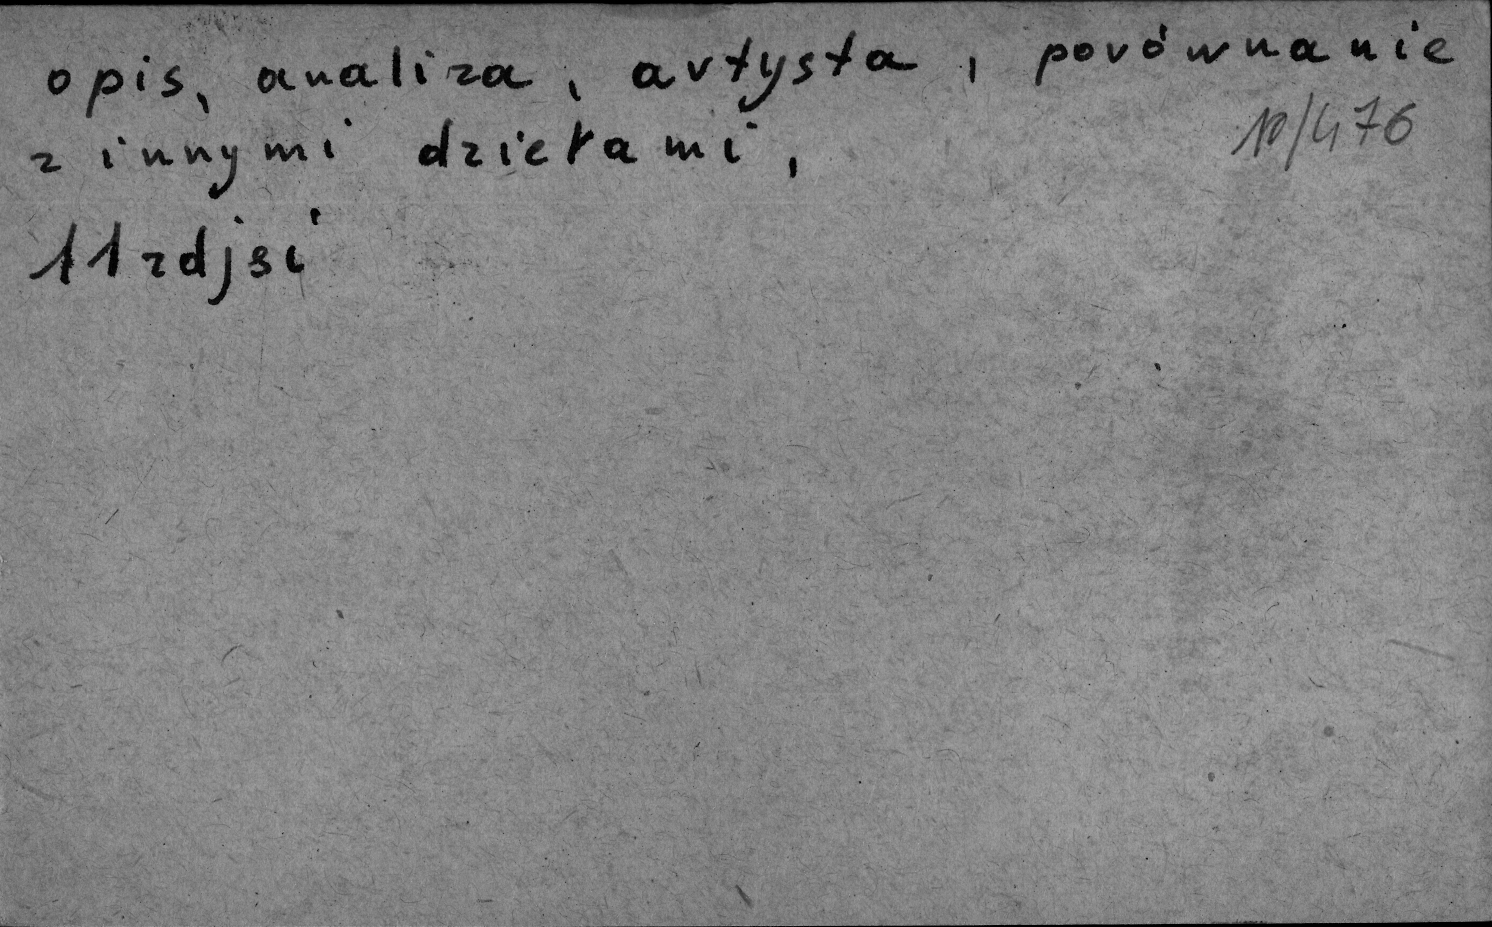 opis, analiza, artysta, porównanie
10/476
z innymi dziełami,
11 zdjęć